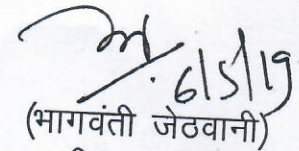 6/5/19
(भागवंती जेठवानी)